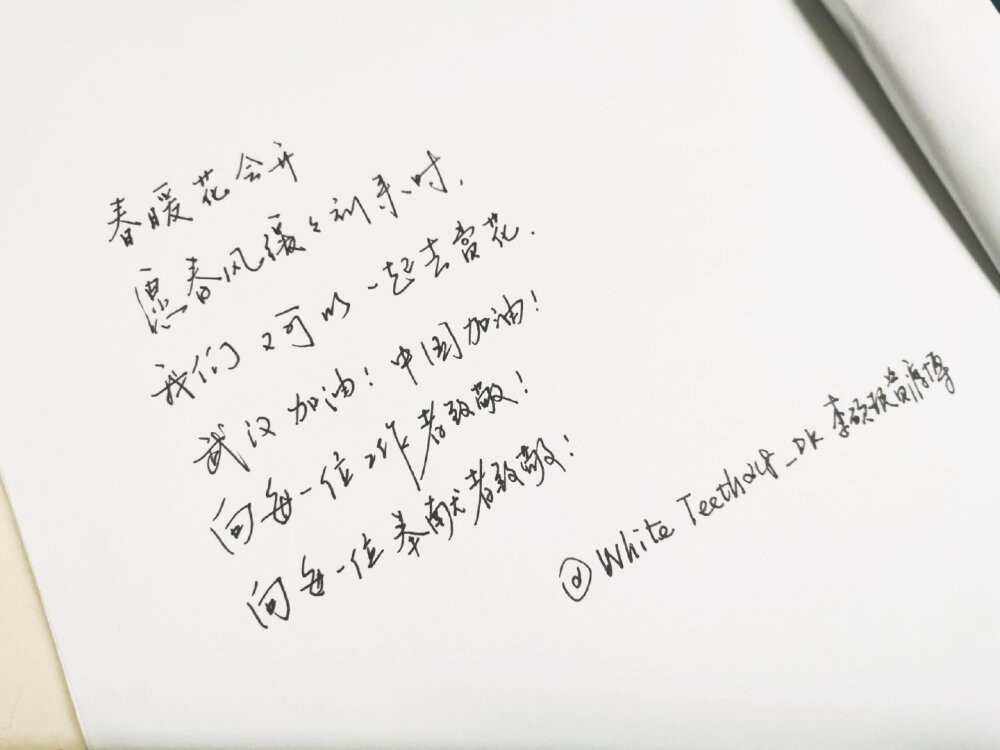 春暖花会开
愿春风缓缓到来时,
我们又可以一起去赏花.
武汉加油!中国加油!
向每一位工作者致敬!
向每一位奉献者致敬!
@White Teeth 李硕